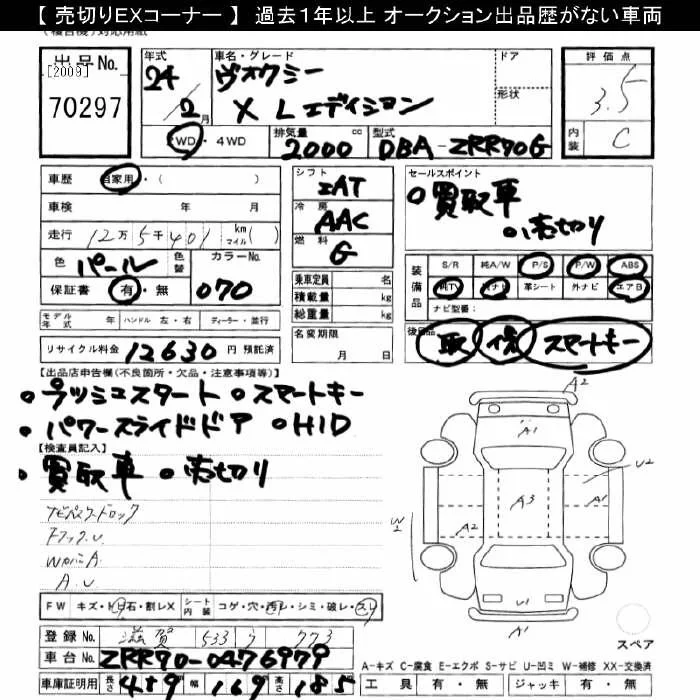 【 売切りEXコーナー 】 過去1年以上 オークション出品歴がない車両
出品No. [2009] 70297
年式 24 2月
車名・グレード ヴォクシー X Lエディション
ドア
形状
2WD・4WD
排気量 2000 cc
型式 DBA-ZRR70G
評価点 3.5
内装 C
車歴 自家用・( )
車検 年 月
走行 12万5千401 km マイル( )
色 パール 色替 カラーNo. 070
保証書 有・無
シフト IAT
冷房 AAC
燃料 G
乗車定員 名
積載量 kg
総重量 kg
セールスポイント
○買取車
○売切り
装備品 S/R 純A/W P/S P/W ABS
純TV 純ナビ 革シート 外ナビ エアB
ナビ型番:
モデル年式 年 ハンドル 左・右 ディーラー・並行
名変期限 月 日
後日品 取 保 スマートキー
リサイクル料金 12630 円 預託済
【出品店申告欄(不良箇所・欠品・注意事項等)】
○プッシュスタート ○スマートキー
○パワースライドドア ○HID
【検査員記入】
○買取車 ○売切り
ナビパスワードロック
A.U
A2
A1
U2
A3
A2
A1
W2
U1
A1
FW キズ・トビ石・割レX シート内装 コゲ・穴・汚レ・シミ・破レ・スレ
登録No. 滋賀 533 773
車台No. ZRR70-0476979
車庫証明用 長さ 459 幅 169 高さ 185
スペア
A-キズ C-腐食 E-エクボ S-サビ U-凹ミ W-補修 XX-交換済
工具 有・無 ジャッキ 有・無